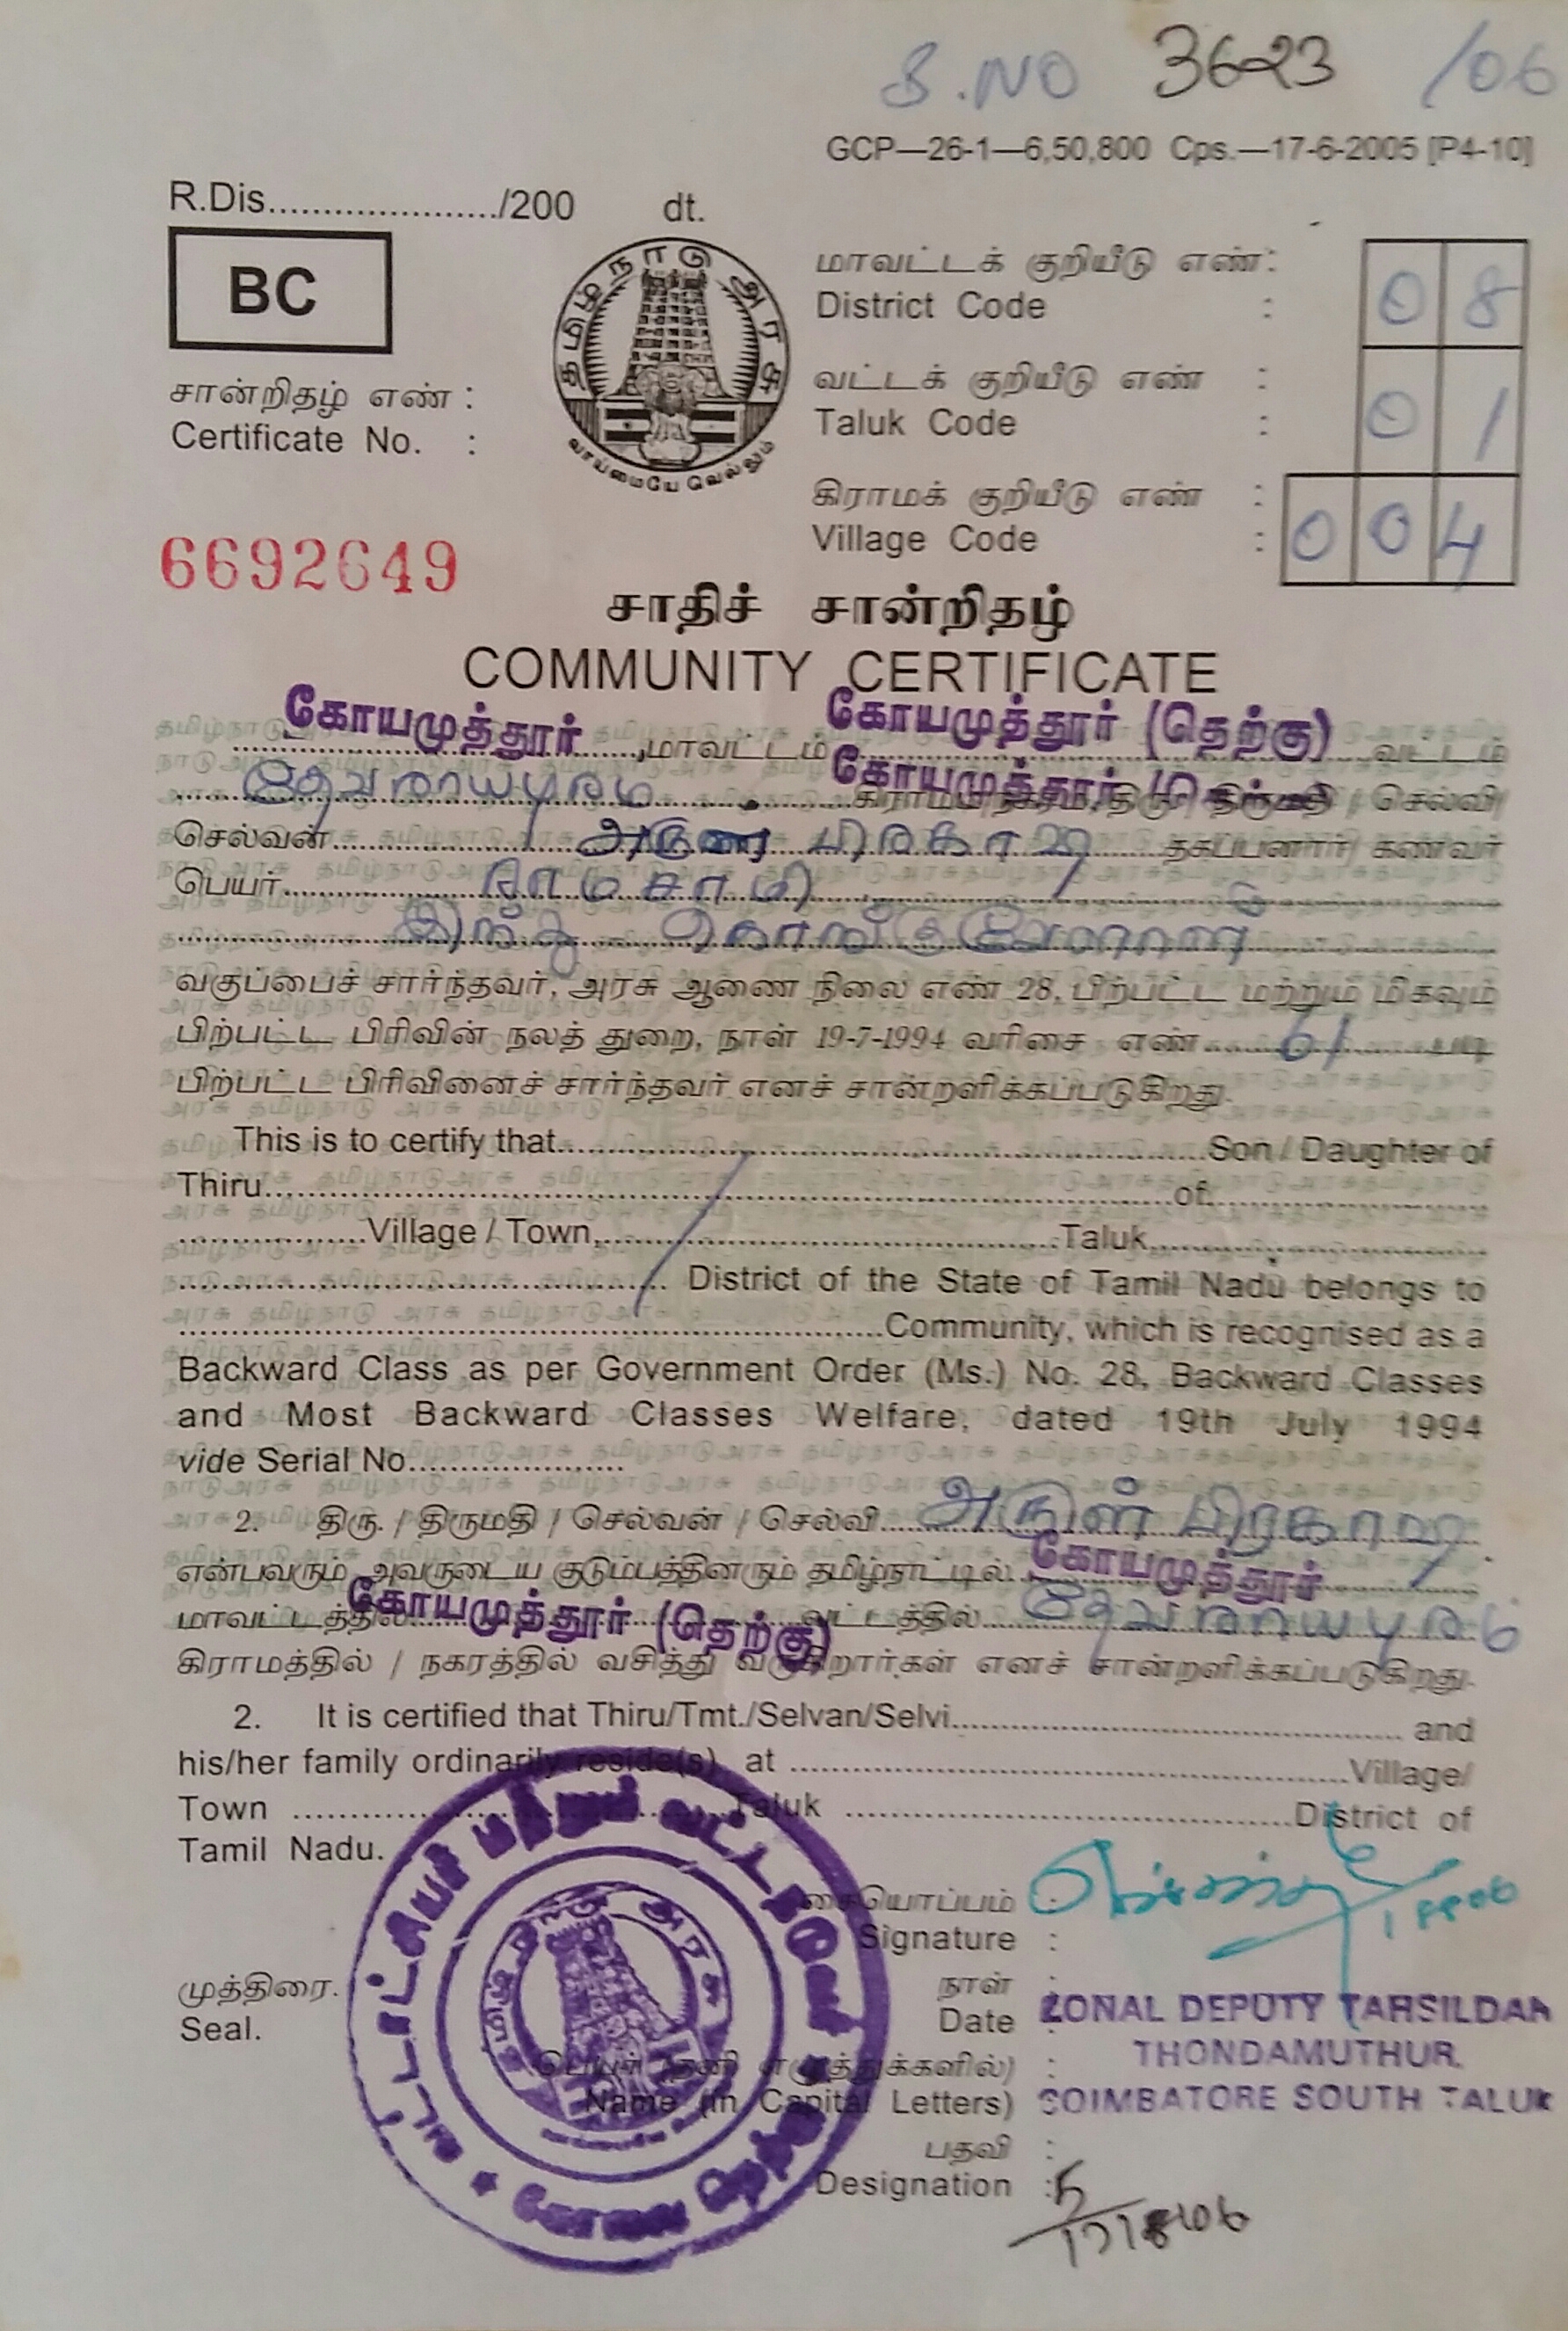 S.NO 3623 /06
GCP—26-1—6,50,800 Cps.—17-6-2005 [P4-10]
R.Dis....................../200 dt.
BC
தமிழ்நாடு அரசு
வாய்மையே வெல்லும்
மாவட்டக் குறியீடு எண் :
District Code : 08
வட்டக் குறியீடு எண் :
Taluk Code : 01
கிராமக் குறியீடு எண் :
Village Code : 004
சான்றிதழ் எண் :
Certificate No. :
6692649
சாதிச் சான்றிதழ்
COMMUNITY CERTIFICATE
கோயமுத்தூர் மாவட்டம் கோயமுத்தூர் (தெற்கு) வட்டம்
கோயமுத்தூர் (தெற்கு)
தேவராயபுரம் கிராமம்/நகரம், திரு/திருமதி/செல்வி/
செல்வன் அருண் பிரகாஷ் தகப்பனார்/கணவர்
பெயர் ராமசாமி
இந்து கொங்குவேளாளர்
வகுப்பைச் சார்ந்தவர், அரசு ஆணை நிலை எண் 28, பிற்பட்ட மற்றும் மிகவும்
பிற்பட்ட பிரிவின் நலத் துறை, நாள் 19-7-1994 வரிசை எண் 61 படி
பிற்பட்ட பிரிவினைச் சார்ந்தவர் எனச் சான்றளிக்கப்படுகிறது.
This is to certify that..............Son / Daughter of
Thiru..............of..............
..............Village / Town,..............Taluk,..............
.............. District of the State of Tamil Nadu belongs to
..............Community, which is recognised as a
Backward Class as per Government Order (Ms.) No. 28, Backward Classes
and Most Backward Classes Welfare, dated 19th July 1994
vide Serial No..............
2. திரு. / திருமதி / செல்வன் / செல்வி அருண் பிரகாஷ்
என்பவரும் அவருடைய குடும்பத்தினரும் தமிழ்நாட்டில் கோயமுத்தூர்
மாவட்டத்தில் கோயமுத்தூர் (தெற்கு) வட்டத்தில் தேவராயபுரம்
கிராமத்தில் / நகரத்தில் வசித்து வருகிறார்கள் எனச் சான்றளிக்கப்படுகிறது.
2. It is certified that Thiru/Tmt./Selvan/Selvi.............. and
his/her family ordinarily reside(s) at ..............Village/
Town ..............Taluk ..............District of
Tamil Nadu.
கையொப்பம் :
Signature :
முத்திரை.
Seal.
நாள் :
Date :
ZONAL DEPUTY TAHSILDAR
THONDAMUTHUR.
COIMBATORE SOUTH TALUK
பெயர் (தனி எழுத்துக்களில்) :
Name (in Capital Letters)
பதவி :
Designation :